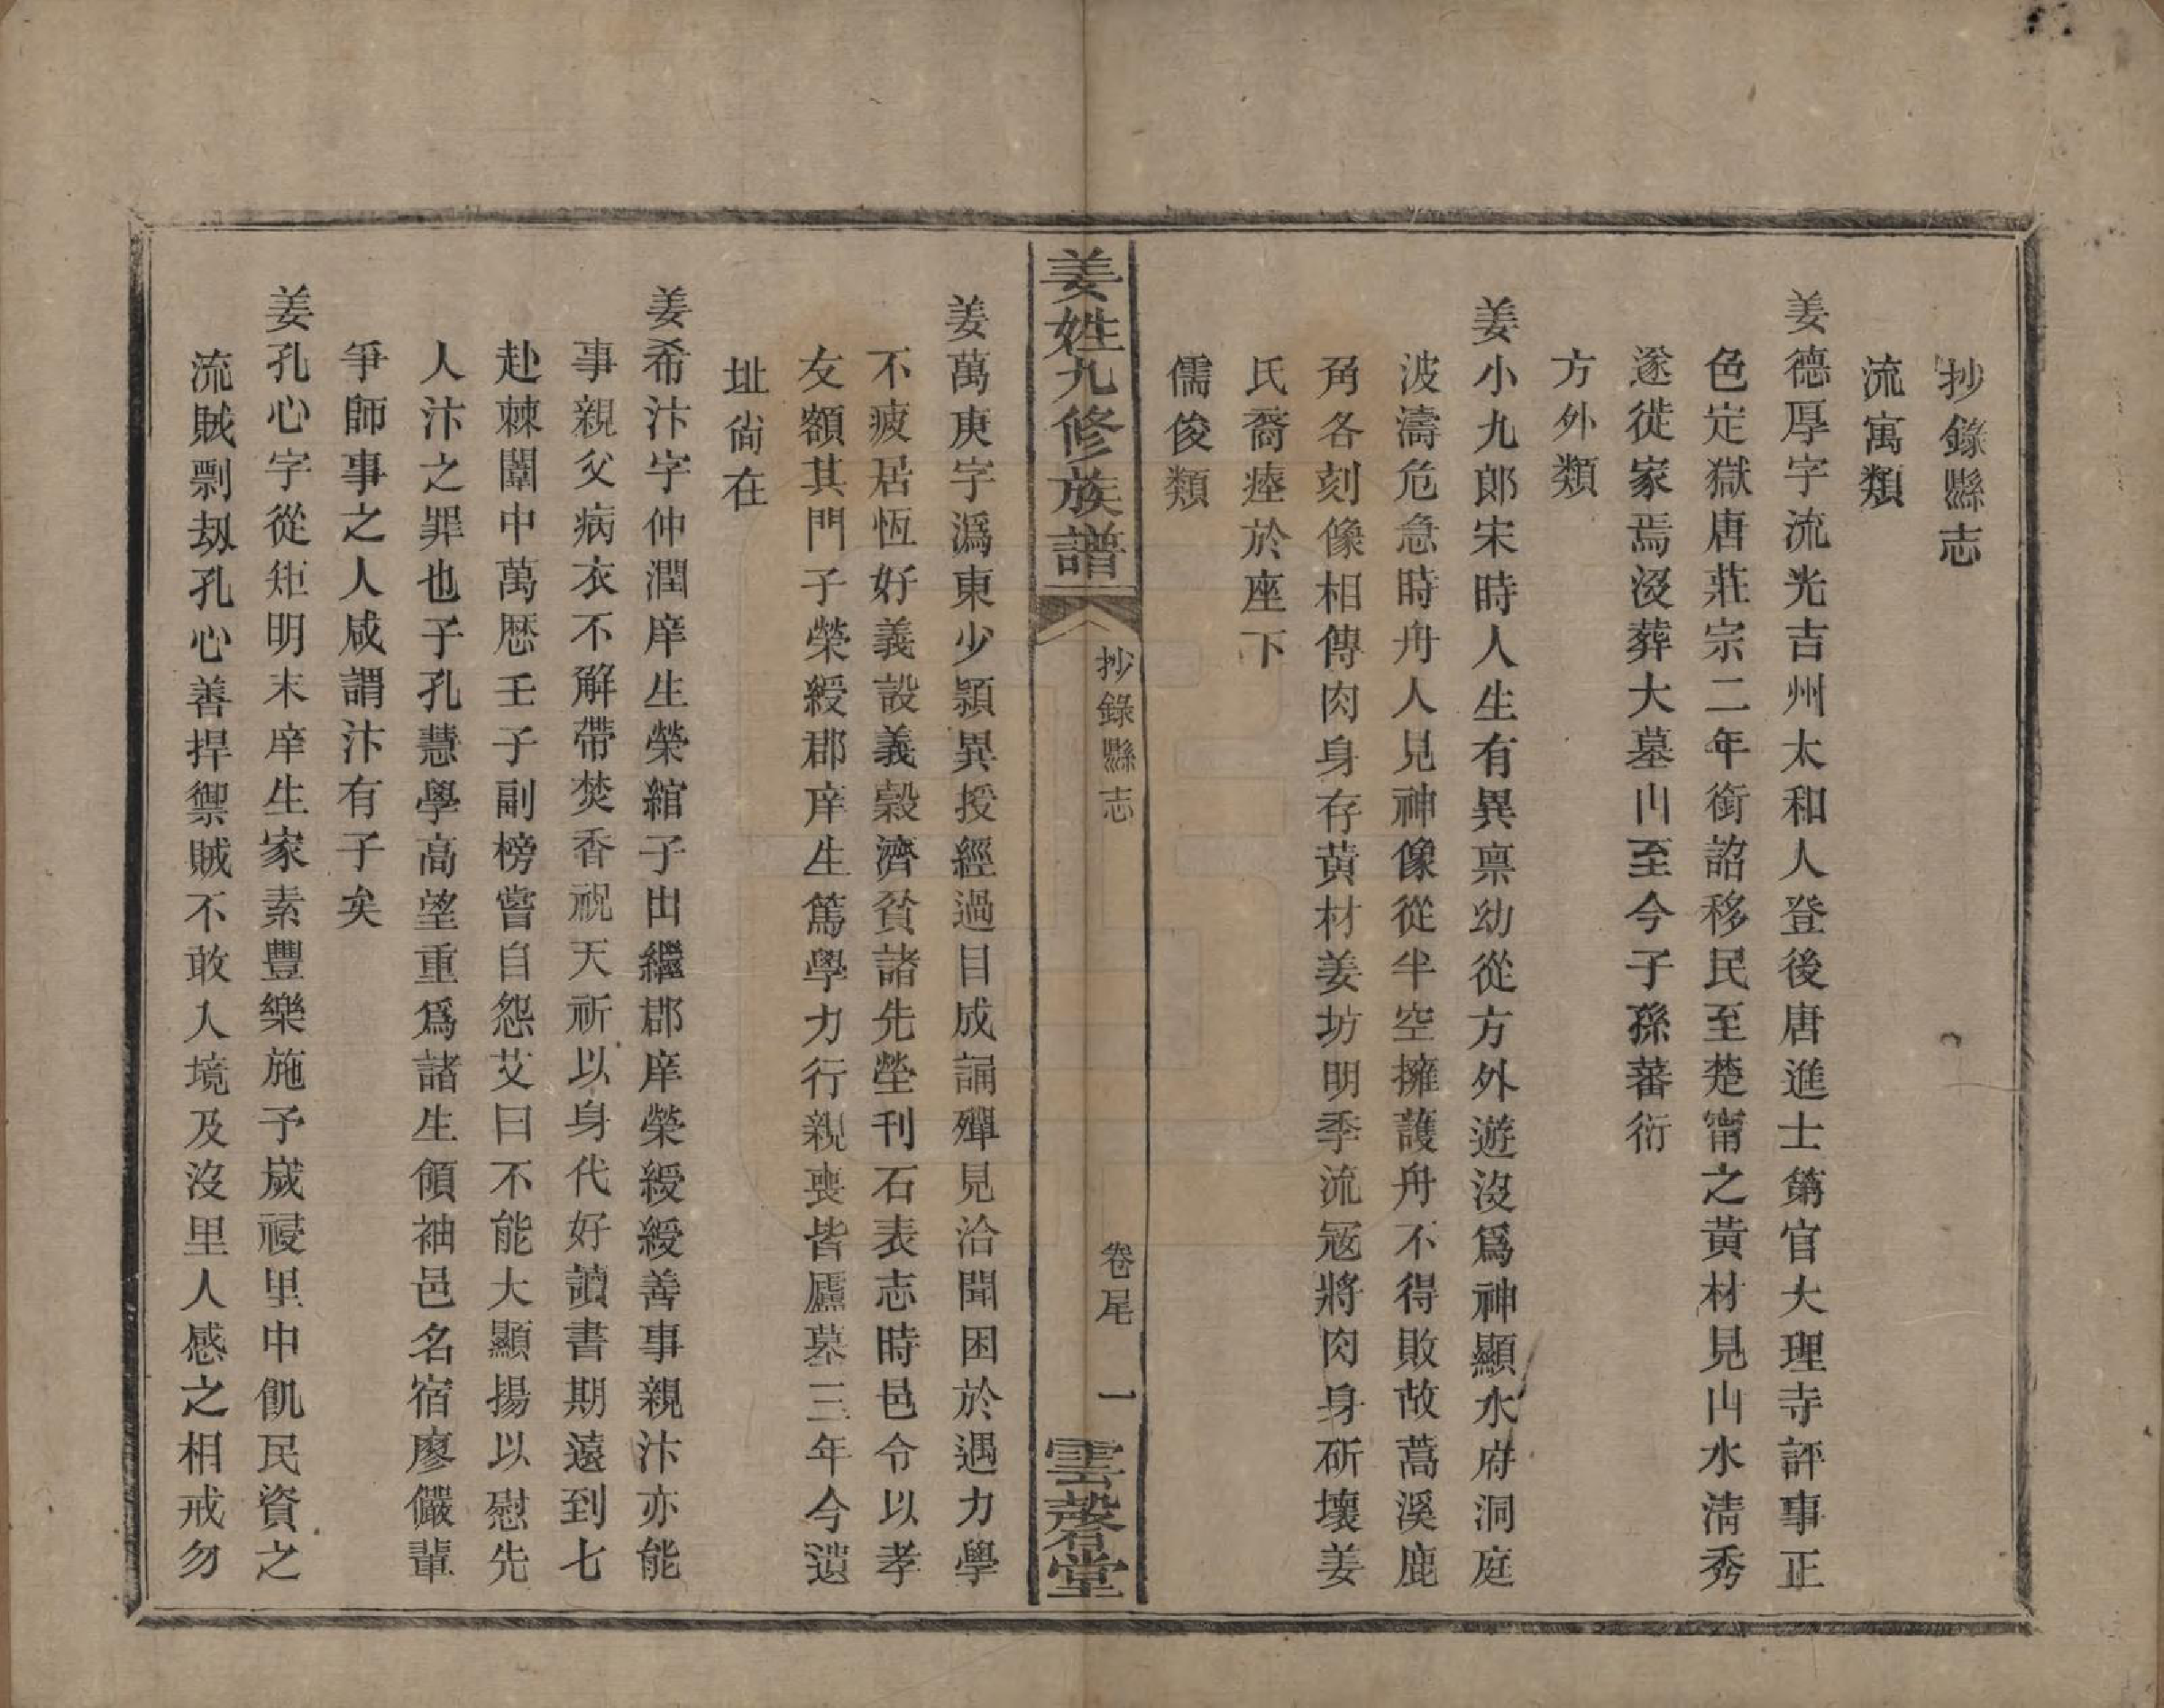 抄錄縣志
流寓類
姜德厚字流光吉州太和人登後唐進士第官大理寺評事正
色定獄唐莊宗二年銜詔移民至楚甯之黃材見山水淸秀
遂徙家焉沒葬大墓山至今子孫蕃衍
方外類
姜小九郎宋時人生有異禀幼從方外遊沒爲神顯水府洞庭
波濤危急時舟人見神像從半空擁護舟不得敗故蒿溪鹿
角各刻像相傳肉身存黃材姜坊明季流寇將肉身斫壞姜
氏裔瘞於座下
儒俊類
姜姓九修族譜
抄錄縣志
卷尾
一
雲磬堂
姜萬庚字潙東少頴異授經過目成誦殫見洽聞困於遇力學
不疲居恆好義設義穀濟貧諸先塋刊石表志時邑令以孝
友額其門子榮綬郡庠生篤學力行親喪皆廬墓三年今遺
址尙在
姜希汴字仲潤庠生榮綰子出繼郡庠榮綬綬善事親汴亦能
事親父病衣不解帶焚香祝天祈以身代好讀書期遠到七
赴棘闈中萬歷壬子副榜嘗自怨艾曰不能大顯揚以慰先
人汴之罪也子孔慧學高望重爲諸生領袖邑名宿廖儼輩
爭師事之人咸謂汴有子矣
姜孔心字從矩明末庠生家素豐樂施予嵗祲里中飢民資之
流賊剽刼孔心善捍禦賊不敢入境及沒里人感之相戒勿